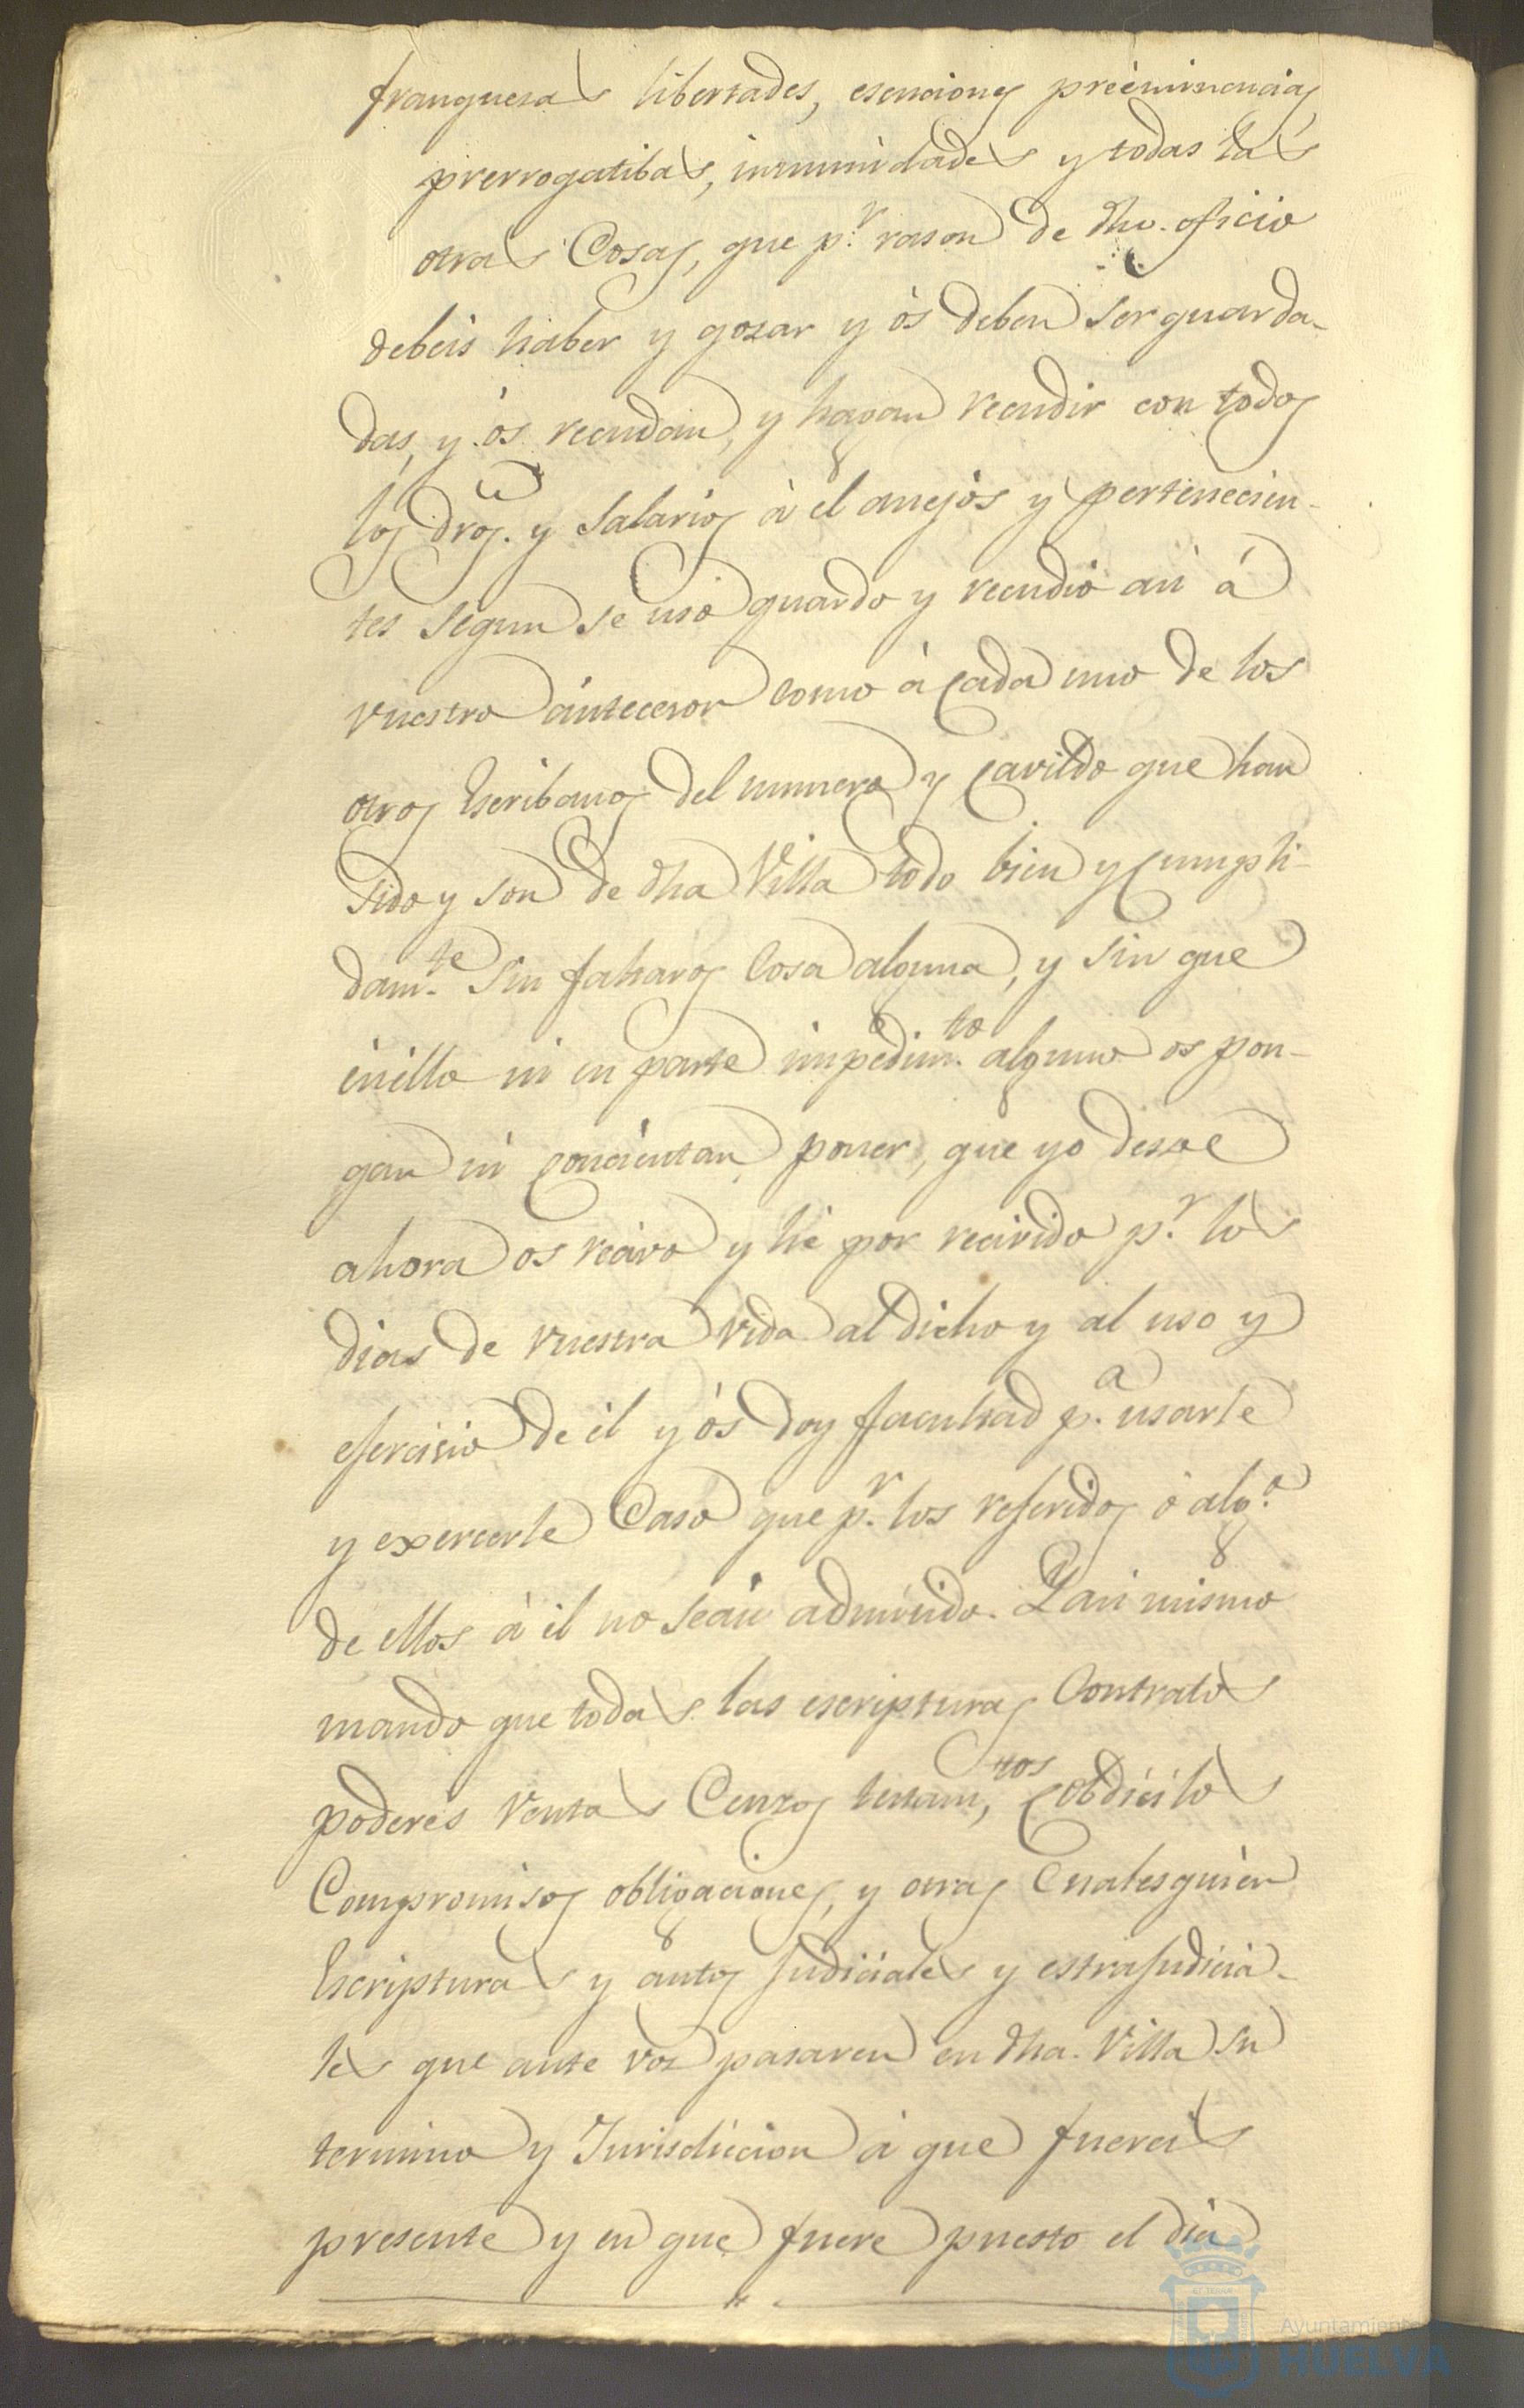 franquesas libertades, esenciones preèminencias
prerrogatibas, inmunidades y todas las
otras Cosas, que p.r rason de dho. oficio
debeis haber y gozar y òs deben ser guarda-
das, y òs recudan, y hagan recudir con todos
los dros. y Salarios à el anejòs y pertenecien-
tes segun se usò guardo y recudiò asi á
vuestro ántecesor como à Cada uno de los
otros Escribanos del numero y Cavildo que han
sido y son de dha Villa todo bien y Cumpli-
dam.te Sin faltaros Cosa alguna, y sin que
ènello ni en parte impedim.to alguno os pon-
gan ni Concientan poner, que yo desde
ahora os recivo y hè por recivido p.r los
dias de vuestra vida al dicho y al uso y
efercisio de èl y òs doy facultad p.a usarle
y exercerle Caso que p.r los referidos ò alg.o
de ellos à èl no seais admitido. Y asi mismo
mando que todas las escripturas Contratos
poderes Ventas Cenzos testam,tos Cobdicilos
Compromisos obligaciones, y otras Cualesquier
Escripturas y autos Judiciales y estraJudicia-
les que ante vos pasaren en dha. Villa su
termino y Jurisdiccion à que fuereis
presente y en que fuere puesto el dia
Ayuntamiento
HUELVA